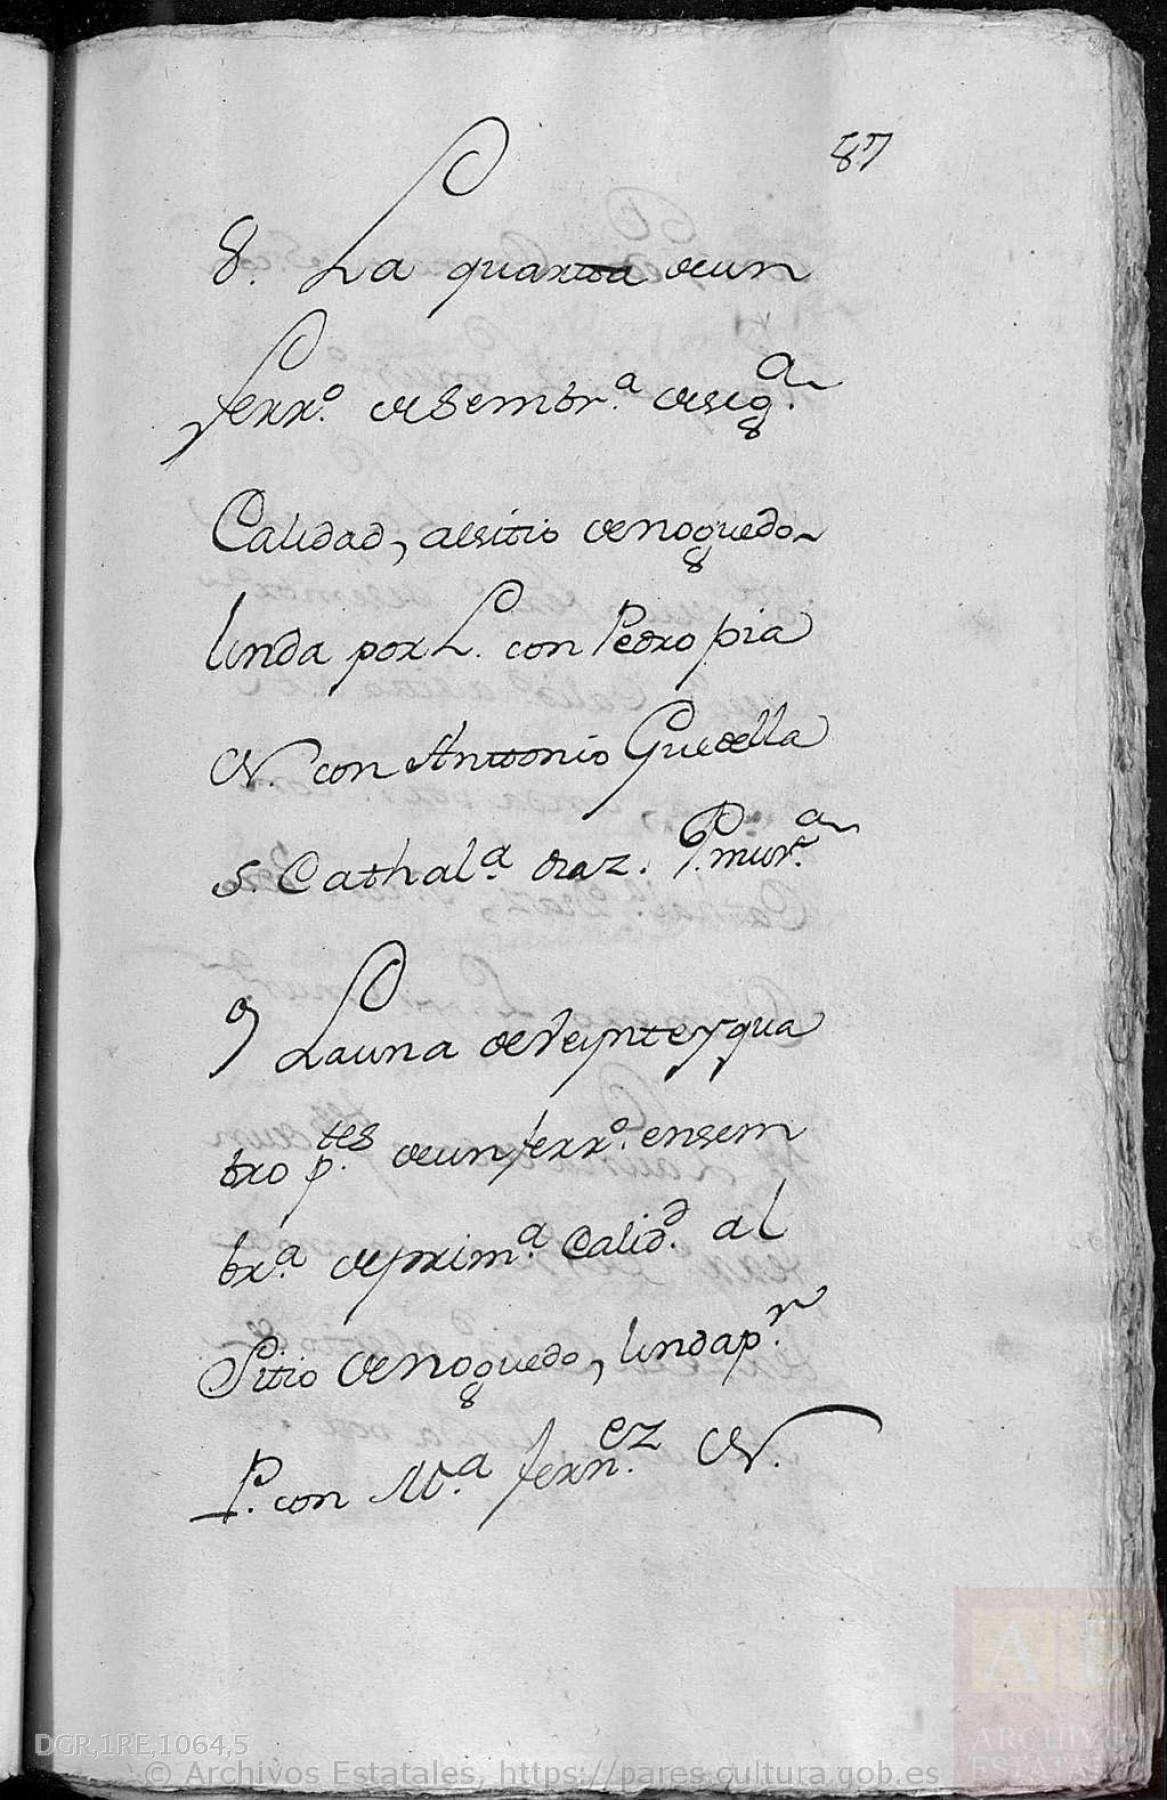 87
8. La quartta de un
ferr.º de Sembr.ª de seg.ª
Calidad, al sitio de noguedo
linda por L. con Pedro pia
N. con Anttonio Guedella
S. Cathal.ª diaz. P. mur.ª
9 La una de Veynte y qua
tro p.tes de un ferr.º en sem
br.ª de prim.ª Calid.d al
Sitio de noguedo, linda p.r
P. con M.ª fern.ez N.
DGR,1RE,1064,5
© Archivos Estatales, https://pares.cultura.gob.es
ARCHIV
ESTATA